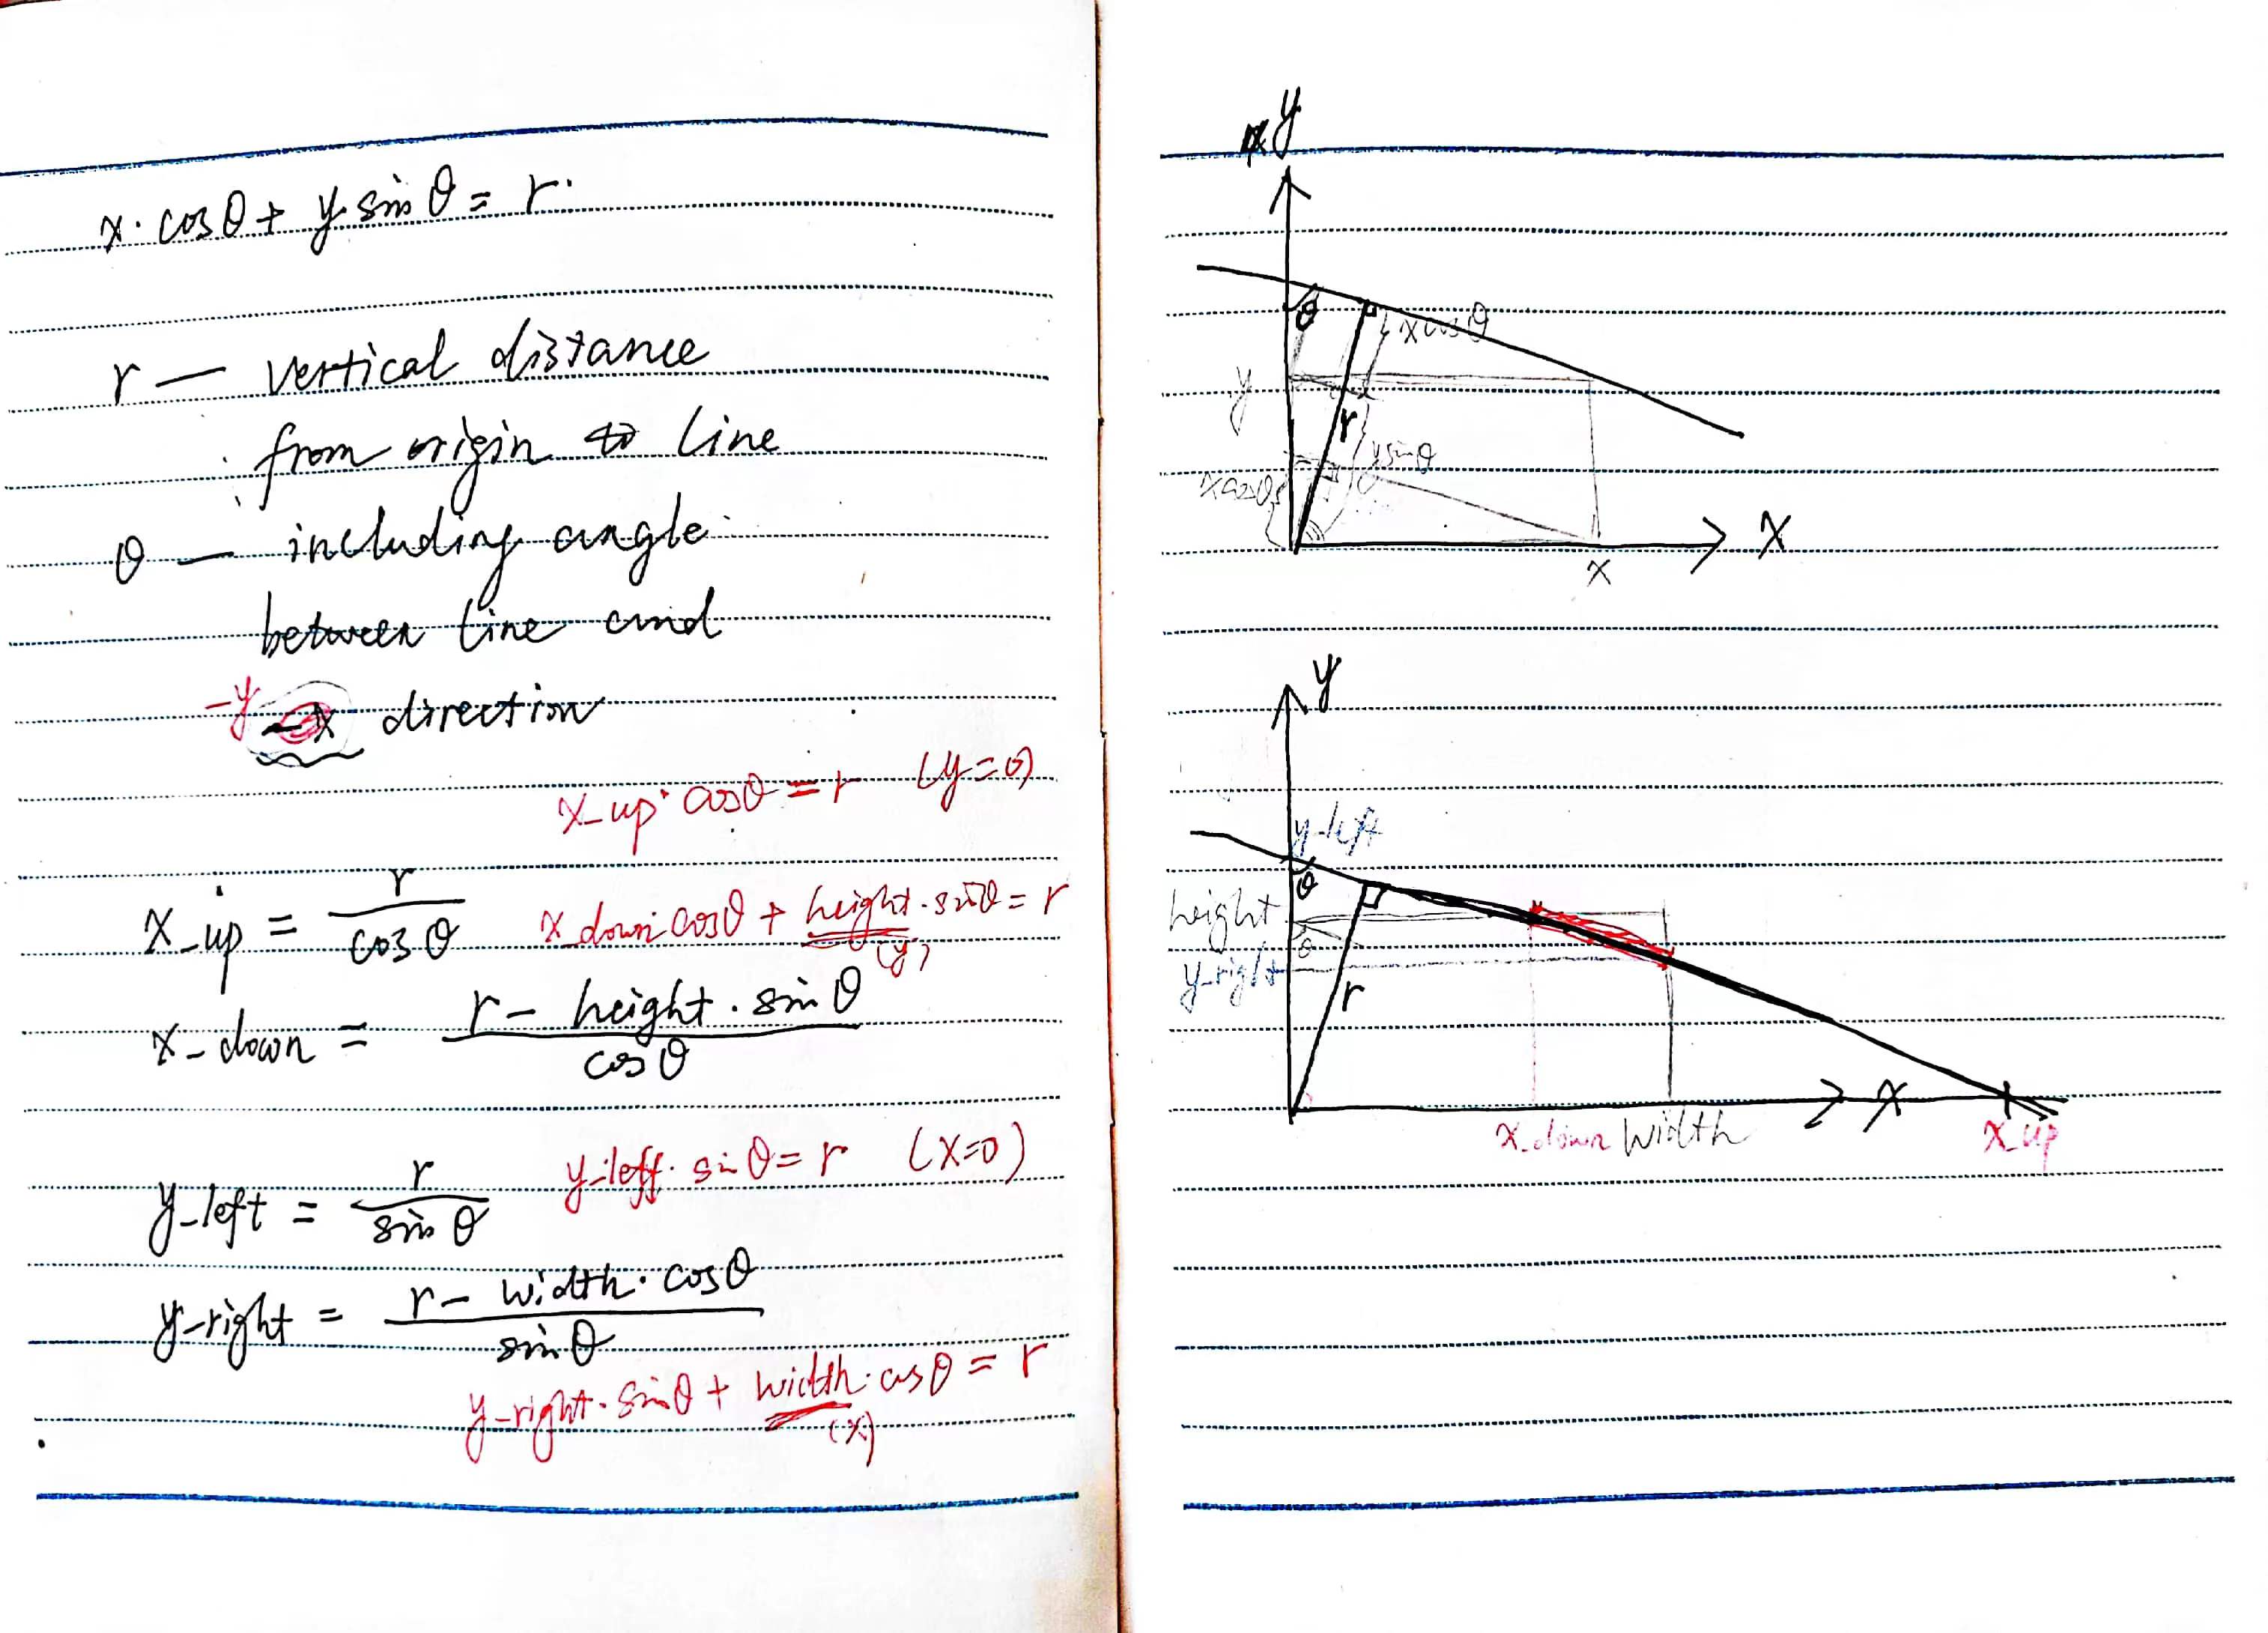 x·cosθ + y·sinθ = r
r — vertical distance
from origin to line
θ — including angle
between line and
-y -x direction
x_up·cosθ = r (y=0)
x_up = r / cosθ
x_down·cosθ + height·sinθ = r
(y)
x_down = r - height·sinθ / cosθ
y_left = r / sinθ
y_left·sinθ = r (x=0)
y_right = r - width·cosθ / sinθ
y_right·sinθ + width·cosθ = r
(x)
y
θ
xcosθ
y
r
ysinθ
xcosθ
x
x
y
y_left
θ
height
θ
y_right
r
x
x_down width
x_up